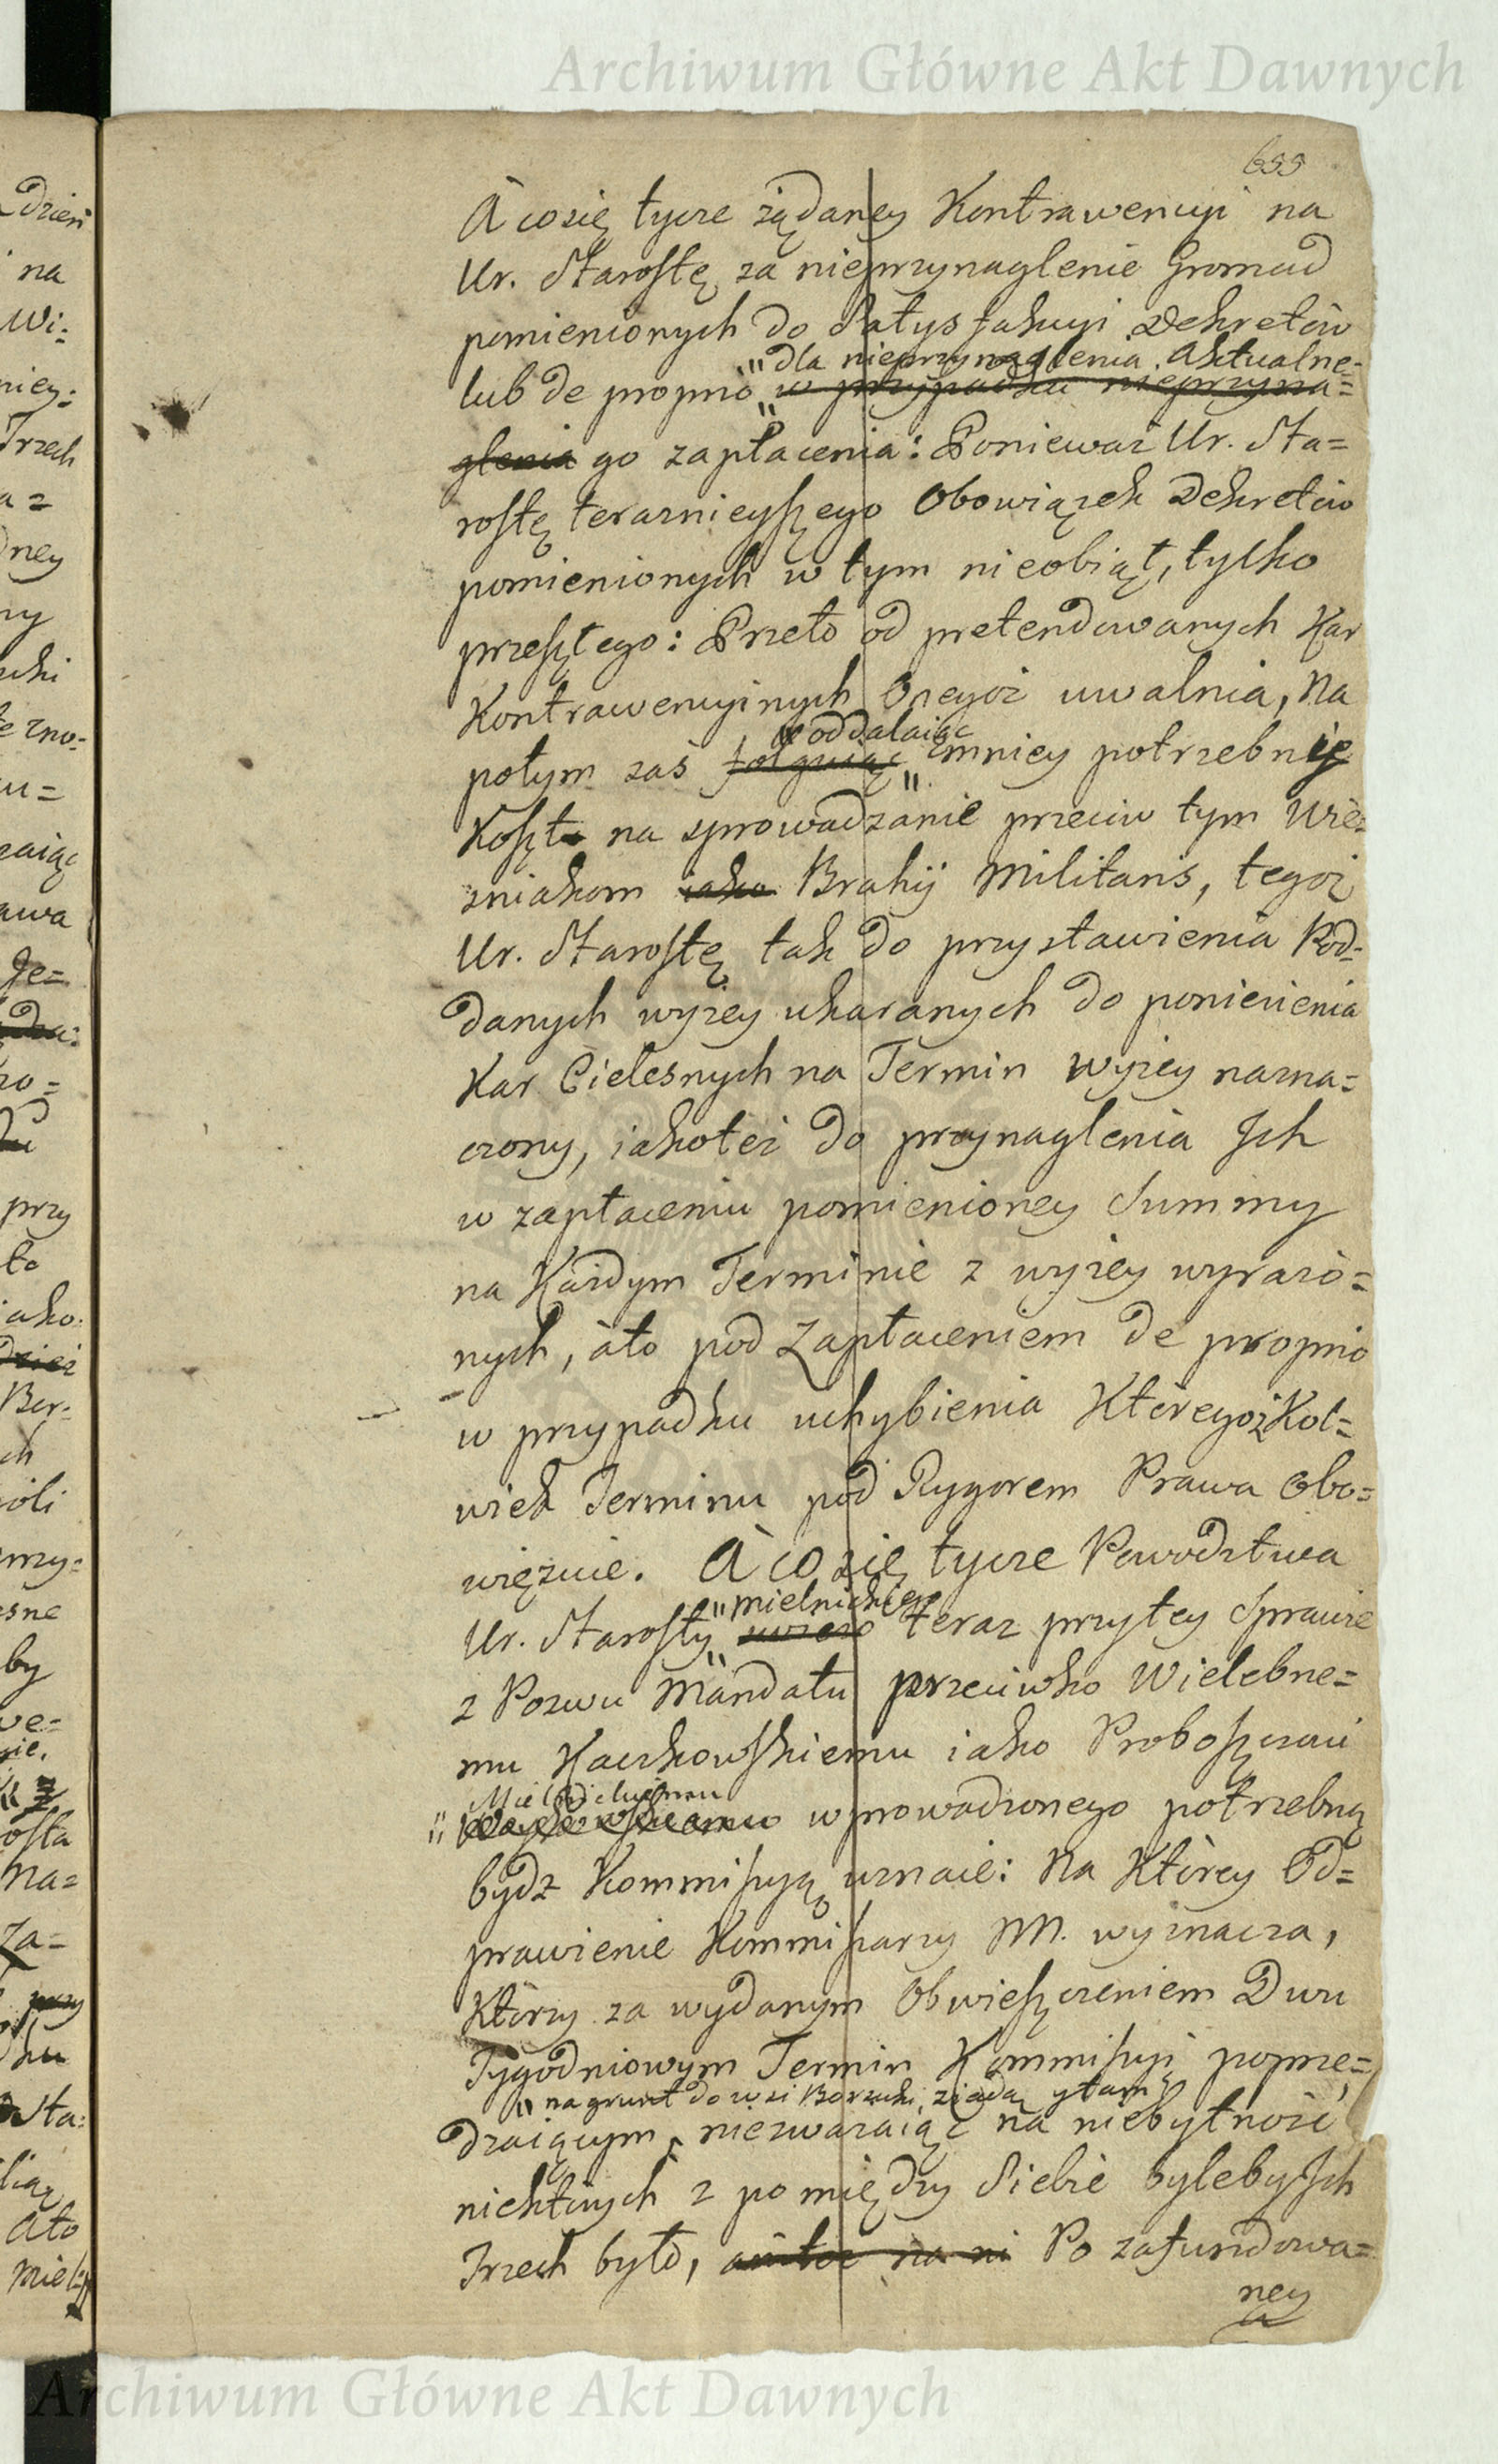 Archiwum Główne Akt Dawnych
655
A co się tycze żądaney Kontrawencyi na
Ur. Starostę za nieprzynaglenie Gromad
pomienionych do Satysfakcyi Dekretów
"dla nieprzynaglenia Aktualne=
lub de proprio w przypadku nieprzyna=
glenia go zapłacenia: Ponieważ Ur. Sta=
rostę teraznieyszego Obowiązek Dekretów
pomienionych w tym nieobiął, tylko
przeszłego: Przeto od pretendowanych Kar
Kontrawencyinych Onegoż uwalnia, Na
"oddalaiąc
potym zaś folguiąc mniey potrzebnie
Koszta na sprowadzanie przeciw tym Wie=
śniakom iako Brahij Militaris, tegoż
Ur. Starostę tak do przystawienia Pod=
danych wyżey ukaranych do poniesienia
Kar Cielesnych na Termin wyżey nazna=
czony, iakoteż do przynaglenia Ich
w zapłaceniu pomienioney Summy
na Każdym Terminie z wyżey wyrażo=
nych, àto pod Zapłaceniem de proprio
w przypadku uchybienia któregożkol=
wiek Terminu pod Rygorem Prawa obo=
więzuie. A co się tycze Powodztwa
"mielnickiego
Ur. Starosty teraz przytey Sprawie
z Pozwu Mandatu przeciwko Wielebne=
mu Kaczkowskiemu iako Proboszczowi
wprowadzonego potrzebną
bydz Kommissyą uznaie: Na Którey Od=
prawienie Kommissarzy NN. wyznacza,
Którzy za wydanym Obwieszczeniem Dwu
Tygodniowym Termin Kommissyi poprze=
"na grunt do wsi Borsuki ziadą ytam
dzaiącym, niezważaiąc na niebytność
niektórych z pomiędzy Siebie byleby Ich
Trzech było, na ni Po zafundowa=
ney
Archiwum Główne Akt Dawnych